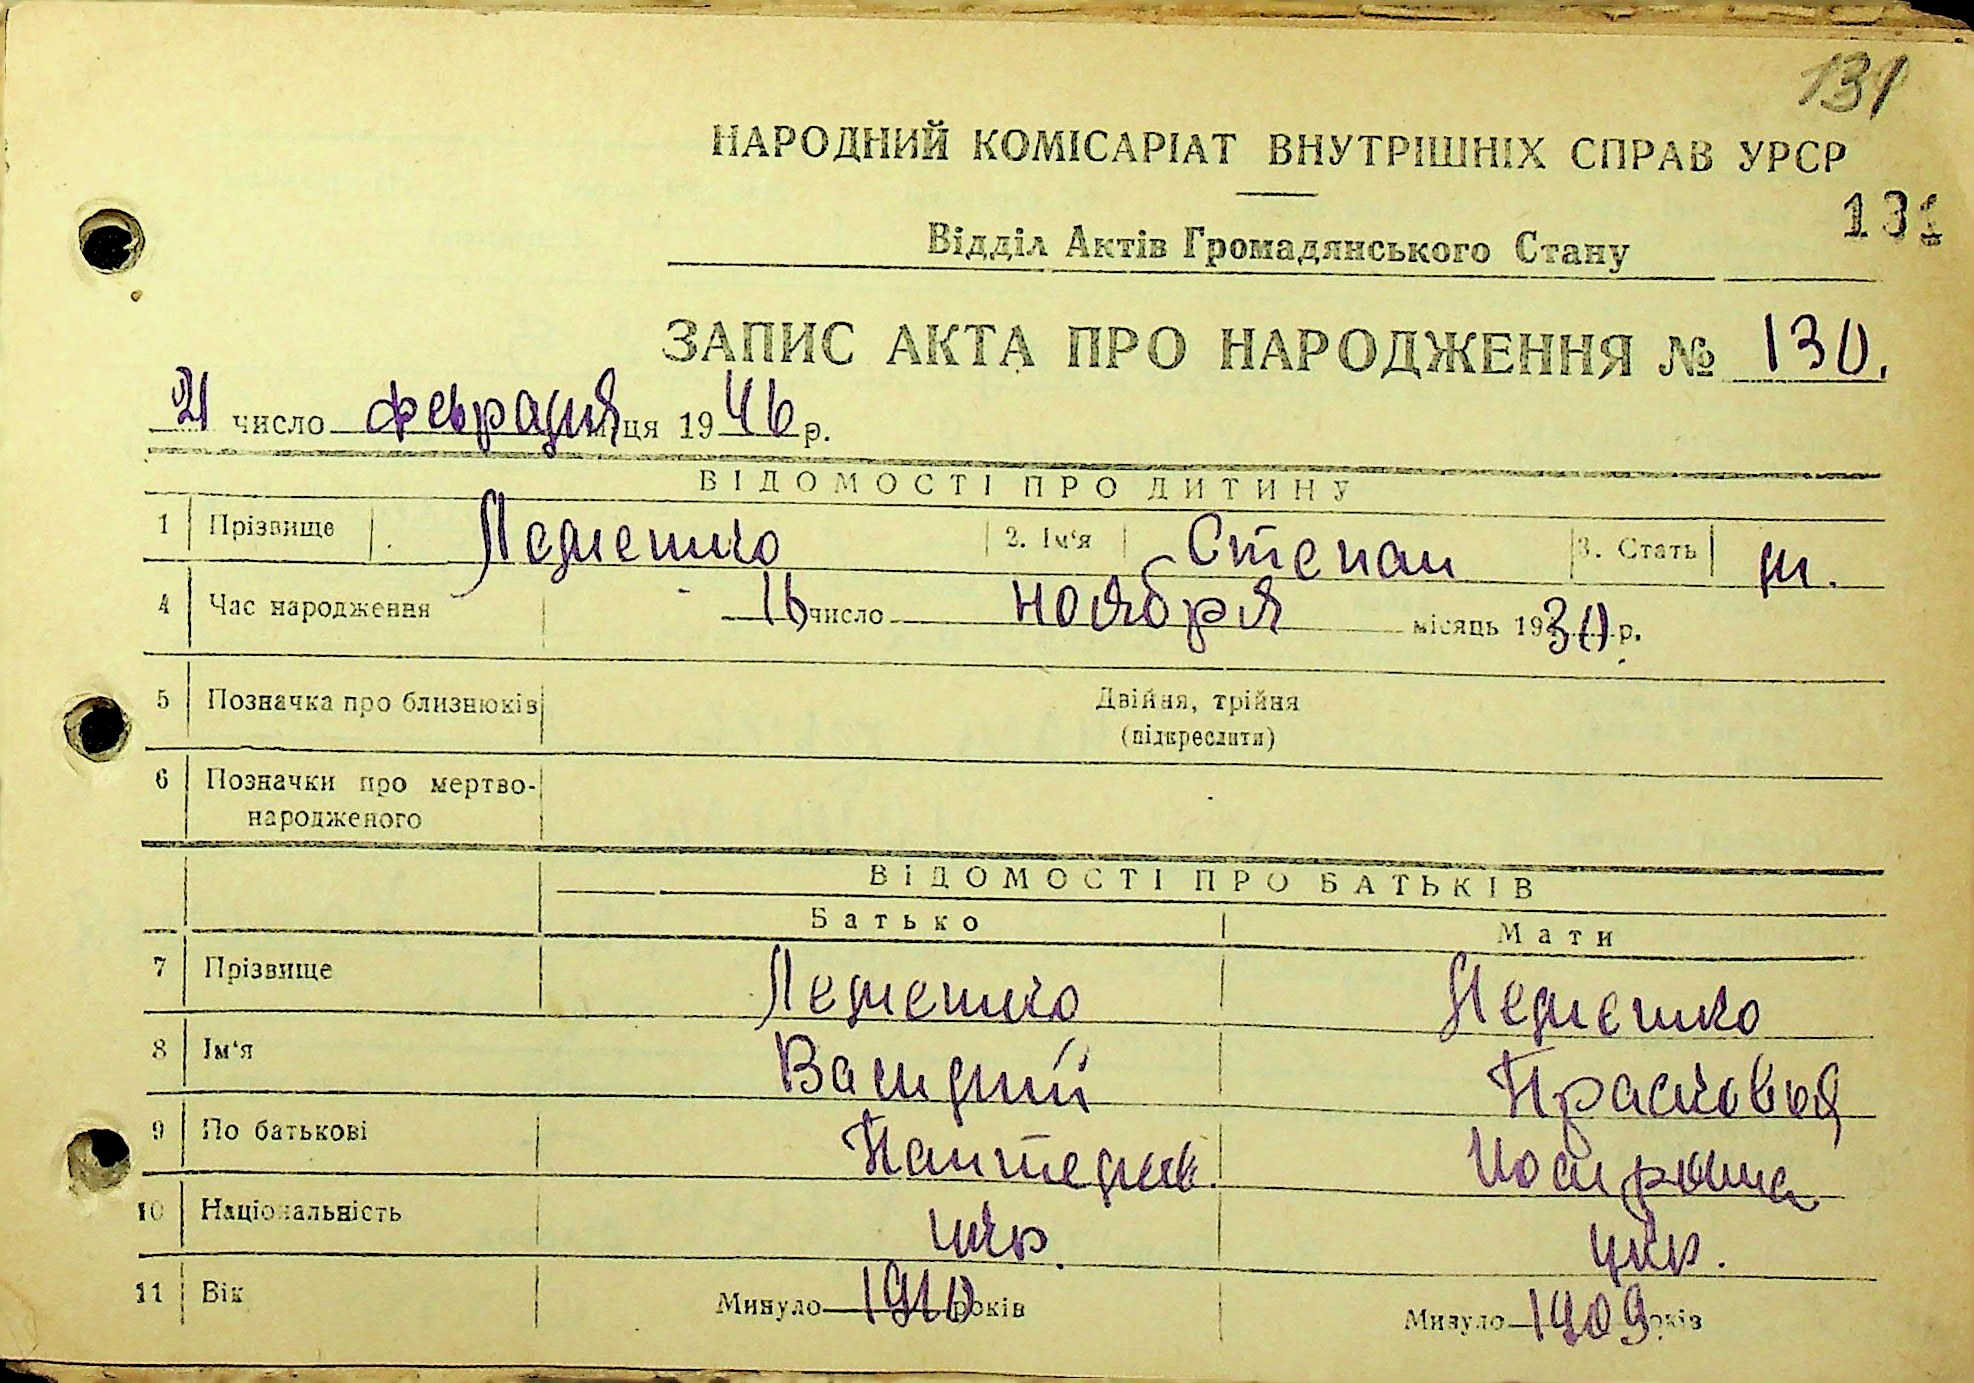 131
НАРОДНИЙ КОМІСАРІАТ ВНУТРІШНІХ СПРАВ УРСР
131
Відділ Актів Громадянського Стану
ЗАПИС АКТА ПРО НАРОДЖЕННЯ № 130.
21 число февраля місяця 1946 р.
ВІДОМОСТІ ПРО ДИТИНУ
1 Прізвище 2. Ім'я Степан 3. Стать м.
4 Час народження 16 число ноября місяць 1930 р.
5 Позначка про близнюків Двійня, трійня
(підкреслити)
6 Позначки про мертво-
народженого
ВІДОМОСТІ ПРО БАТЬКІВ
Батько Мати
7 Прізвище
8 Ім'я Василий Прасковья
9 По батькові Пантелие.
10 Національність укр. укр.
11 Вік Минуло 1910 років Минуло 1909 років